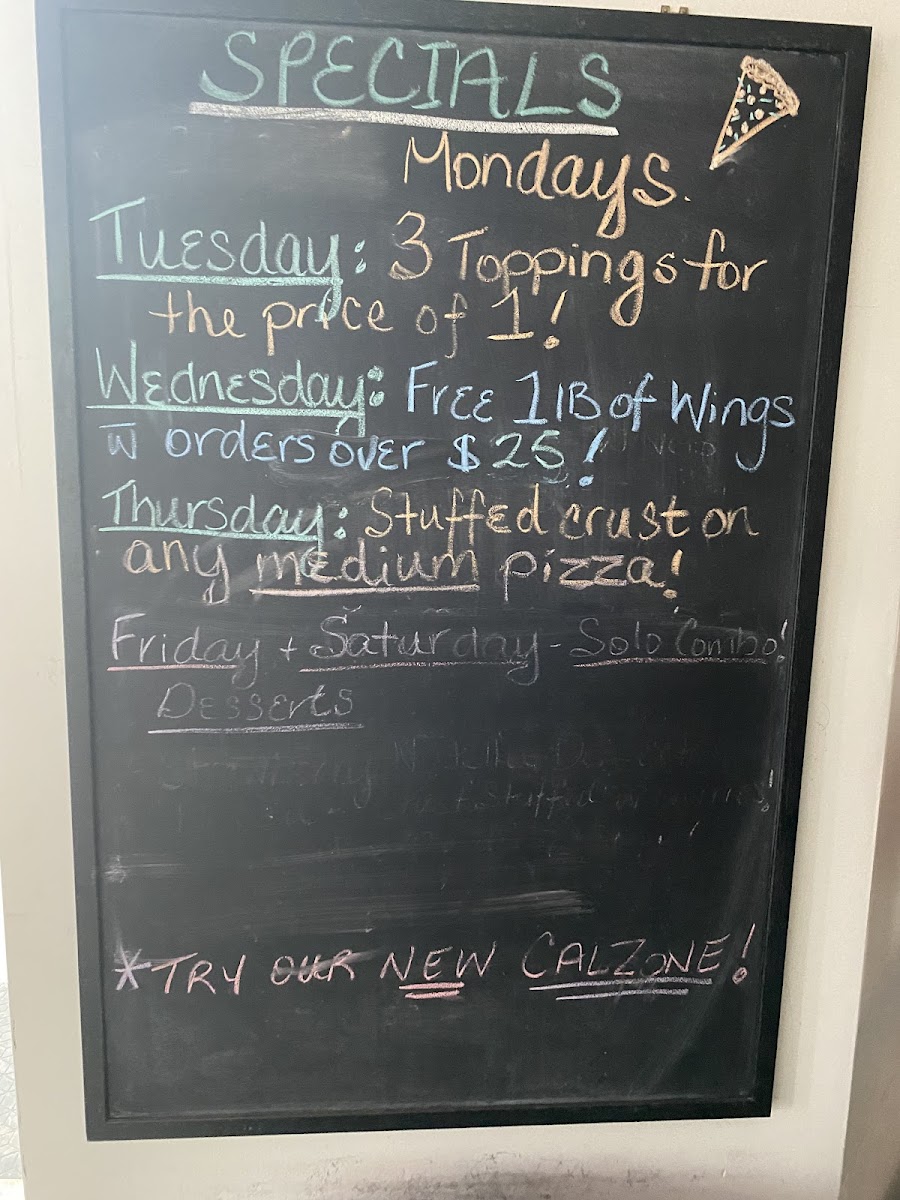 SPECIALS
Mondays.
Tuesday: 3 Toppings for
the price of 1!
Wednesday: Free 1 lB of Wings
w orders over $25!
Thursday: Stuffed crust on
any medium pizza!
Friday + Saturday - Solo Combo!
Desserts
Stuffed
*TRY OUR NEW CALZONE!